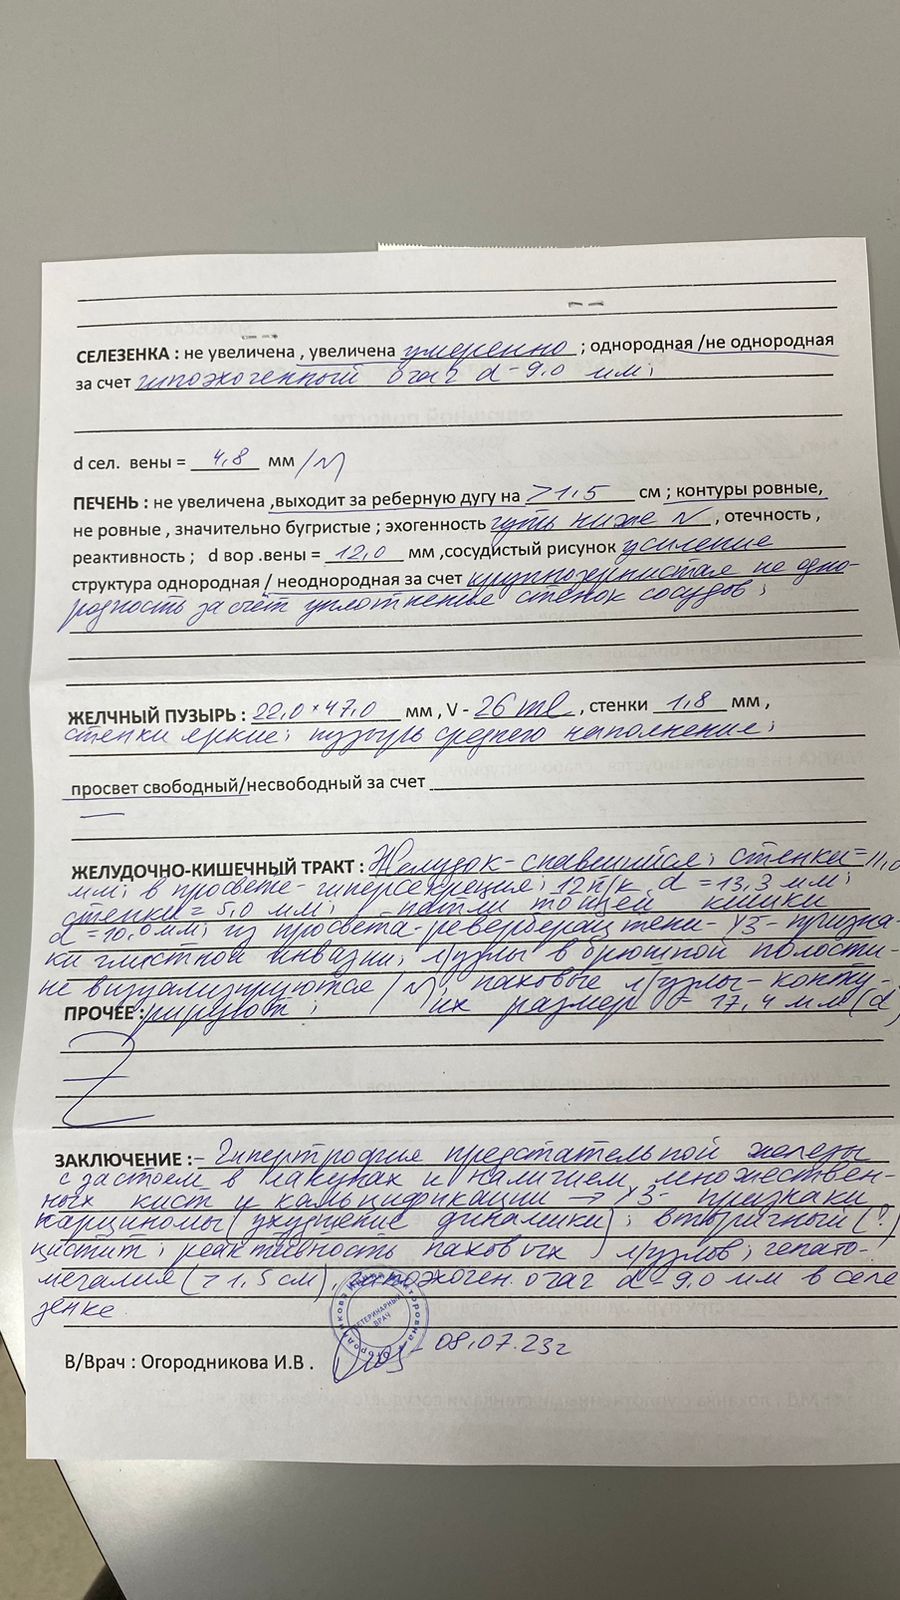 СЕЛЕЗЕНКА : не увеличена , увеличена умеренно ; однородная /не однородная
за счет гипоэхогенный очаг d - 9,0 мм;
d сел. вены = 4,8 мм /N/
ПЕЧЕНЬ : не увеличена ,выходит за реберную дугу на >1,5 см ; контуры ровные,
не ровные , значительно бугристые ; эхогенность чуть ниже N , отечность ,
реактивность ; d вор .вены = 12,0 мм ,сосудистый рисунок усиление
структура однородная / неоднородная за счет крупнозернистая не одно-
родность за счёт уплотнения стенок сосудов ;
ЖЕЛЧНЫЙ ПУЗЫРЬ : 22,0 × 47,0 мм , V - 26 ml , стенки 1,8 мм ,
стенки яркие; пузырь среднего наполнения;
просвет свободный/несвободный за счет
ЖЕЛУДОЧНО-КИШЕЧНЫЙ ТРАКТ : Желудок - спавшийся; стенки = 11,0
мм; в просвете - гиперсекреция; 12 п/к d = 13,3 мм;
стенки = 5,0 мм; петли тощей кишки
d = 10,0 мм; из просвета - реверберац тени - УЗ - призна-
ки глистной инвазии; л/узлы в брюшной полости -
не визуализируются /N/; паховые л/узлы - конту-
ПРОЧЕЕ : рируют ; их размер = 17,4 мм (d)
ЗАКЛЮЧЕНИЕ : - Гипертрофия предстательной железы
с застоем в лакунах и наличием множествен-
ных кист и кальцификации → УЗ - признаки
карциномы (ухудшение динамики); вторичный (?)
цистит; реактивность паховых л/узлов; гепато-
мегалия (> 1,5 см), гипоэхоген. очаг d - 9,0 мм в селе
зенке
ВЕТЕРИНАРНЫЙ
ВРАЧ
В/Врач : Огородникова И.В . 08.07.23г